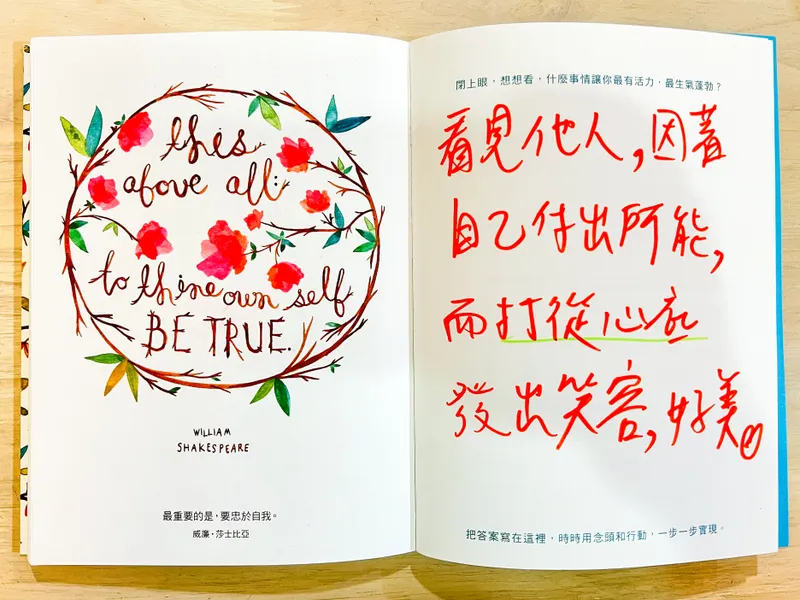 this
above all:
to thine own self
BE TRUE.
WILLIAM
SHAKESPEARE
最重要的是，要忠於自我。
威廉·莎士比亞
閉上眼，想想看，什麼事情讓你最有活力，最生氣蓬勃？
看見他人，因著
自己付出所能，
而打從心底
發出笑容，好美。
把答案寫在這裡，時時用念頭和行動，一步一步實現。